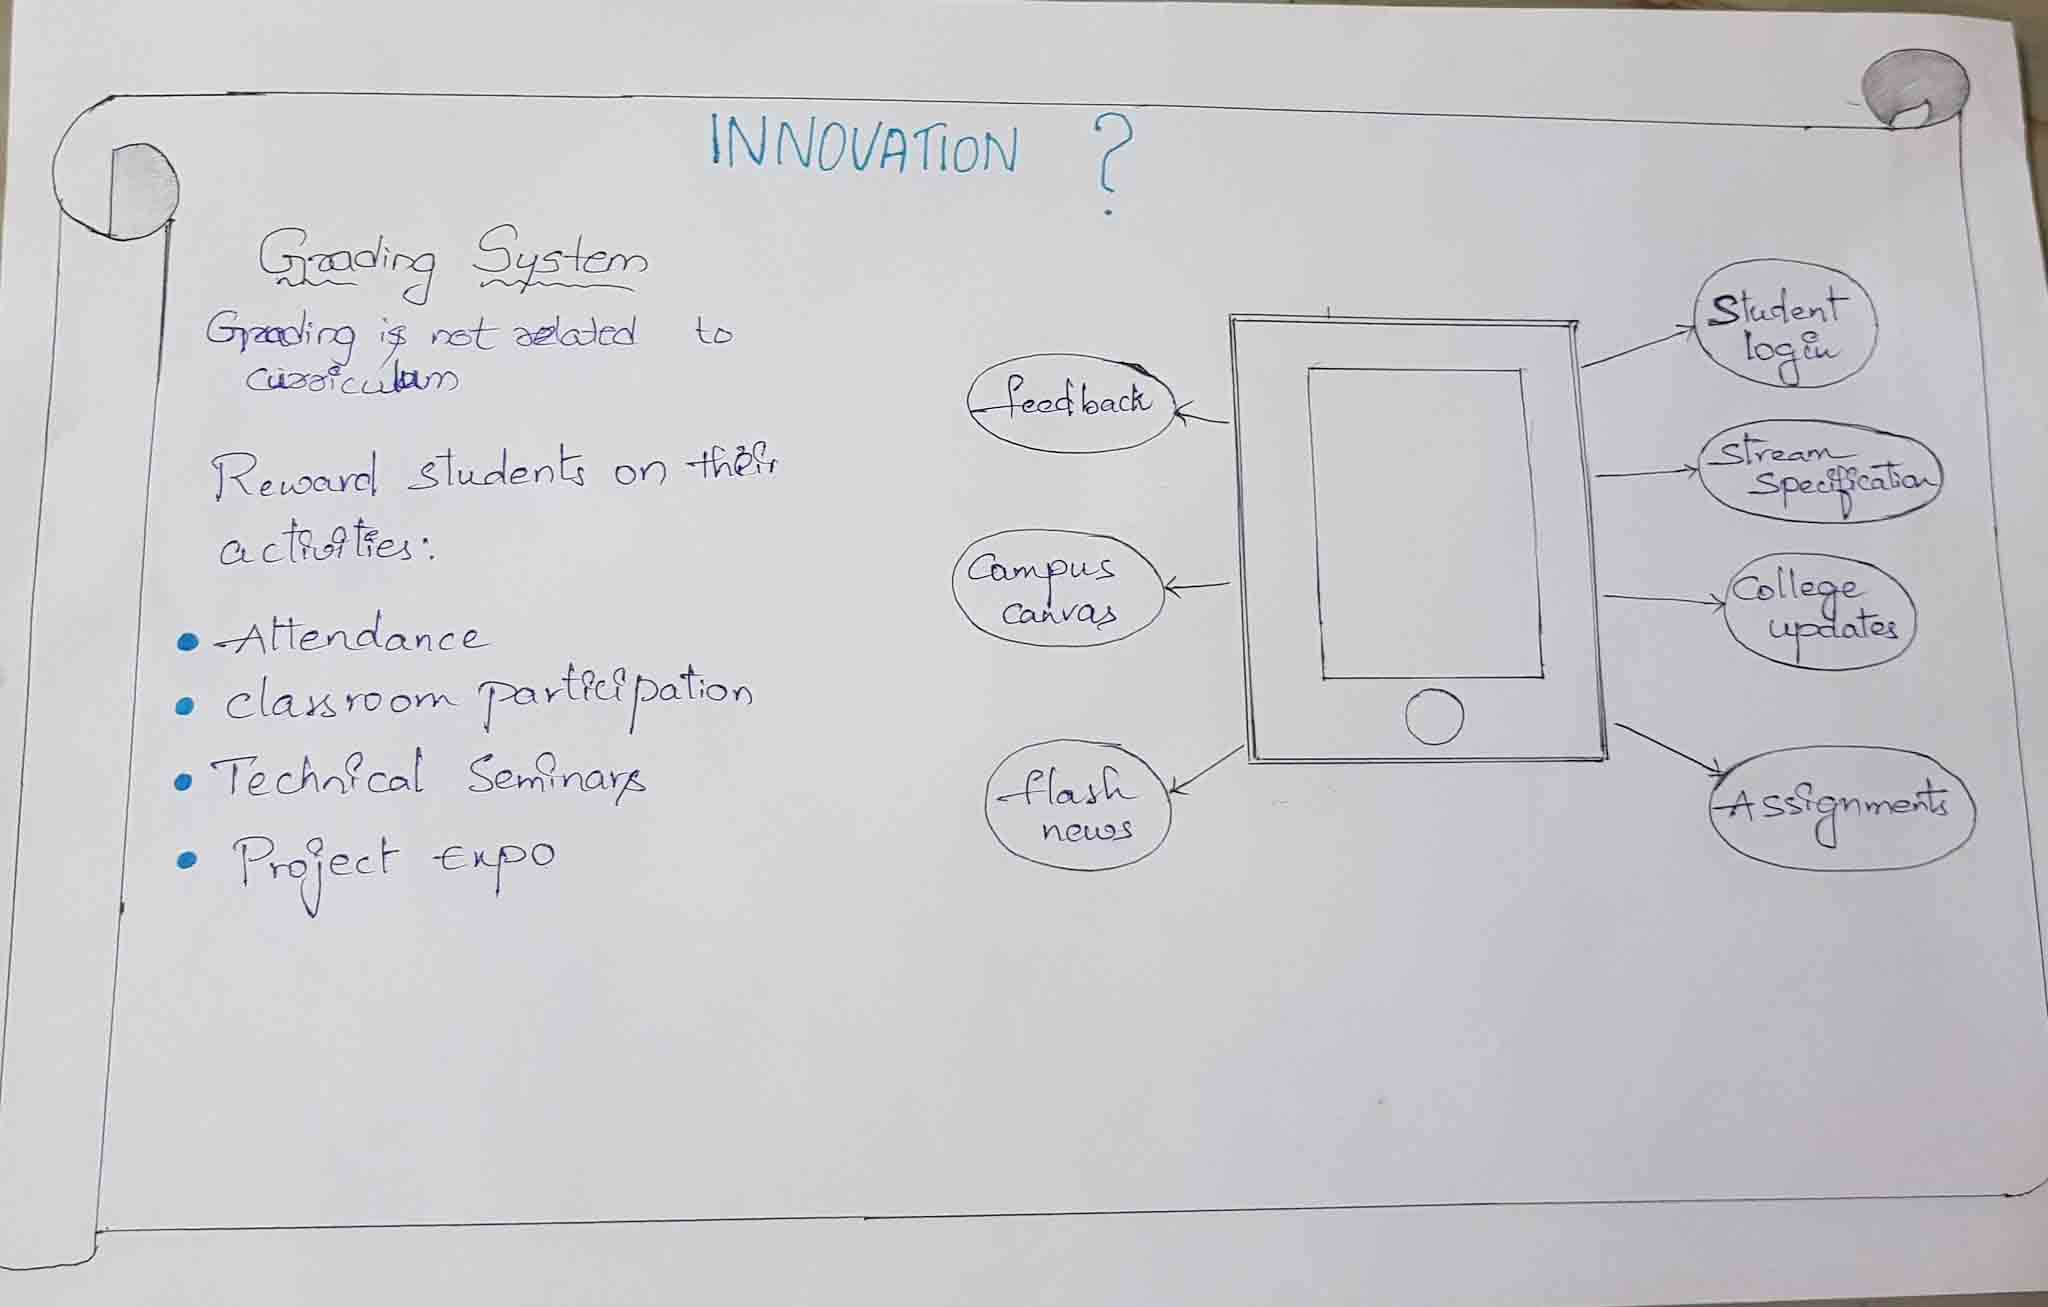 INNOVATION ?
Grading System
Grading is not related to
curriculum
Reward students on their
activities:
• Attendance
• classroom participation
• Technical Seminars
• Project Expo
feedback
Campus
canvas
flash
news
Student
login
Stream
Specification
College
updates
Assignments